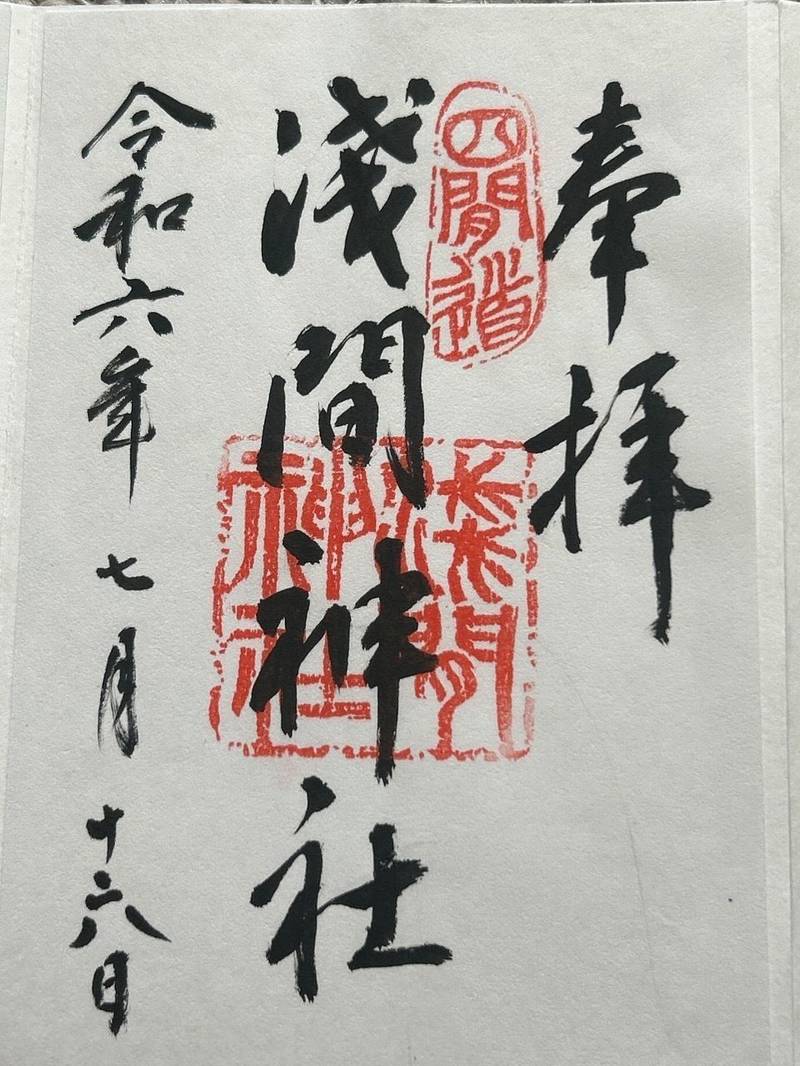 奉拝
四間道
淺間神社
淺間神社
令和六年七月十六日